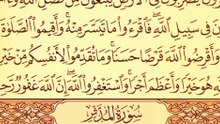 فِى سَبِيلِ ٱللَّهِ فَٱقْرَءُوا۟ مَا تَيَسَّرَ مِنْهُ وَأَقِيمُوا۟ ٱلصَّلَوٰةَ
وَأَقْرِضُوا۟ ٱللَّهَ قَرْضًا حَسَنًا وَمَا تُقَدِّمُوا۟ لِأَنفُسِكُم مِّنْ خَيْرٍ
هُوَ خَيْرًا وَأَعْظَمَ أَجْرًا وَٱسْتَغْفِرُوا۟ ٱللَّهَ إِنَّ ٱللَّهَ غَفُورٌ رَّحِيمٌ
سُورَةُ المُدَّثِّر